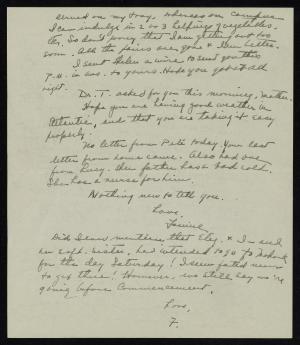 served on my tray, whereas on campus
I can indulge in 2 or 3 helpings of vegetables
etc. So don't worry that I am getting out too
soon. All the pains are gone & I am better.
I sent Helen a wire to send you this
P.M. in ans. to yours. Hope you got it all
right.
Dr. T. asked for you this morning,
Hope you are having good weather in
Atlantic, and that you are taking it easy
properly.
No letter from Pete today. Your last
letter from home came. Also had one
from Lucy. Her father has a bad cold.
She has a nurse for him.
Nothing new to tell you.
Love,
Did I ever mention that Eley. & I and
her soph. sister, had intended to go to Mohonk
for the day Saturday! I seem fated never
to get there! However, we still say we're
going before Commencement.
Love,
F.